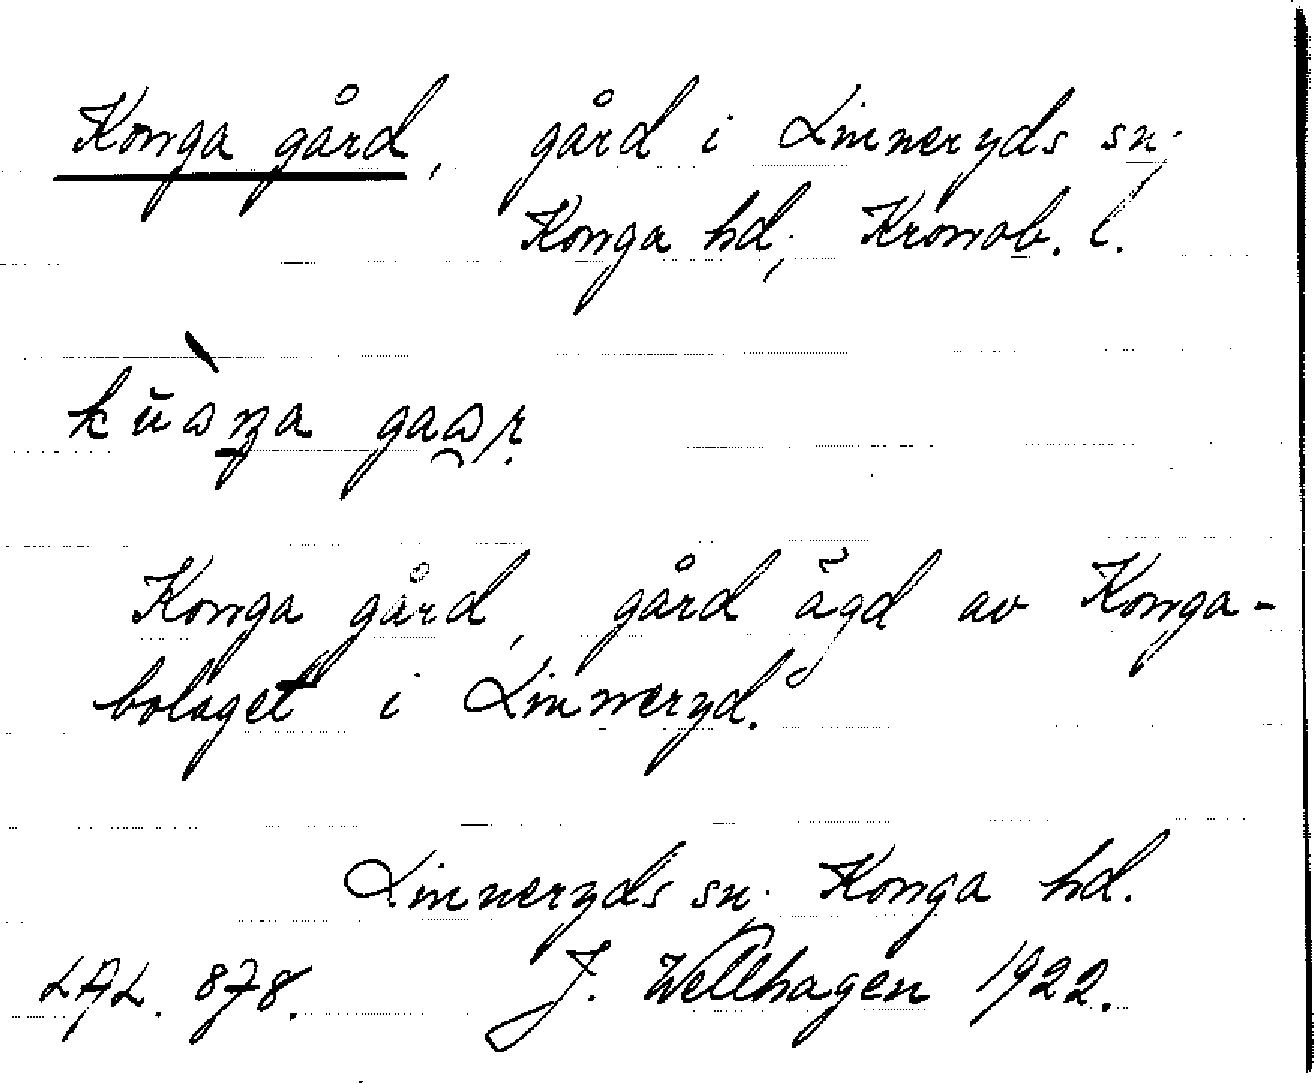 Konga gård, gård i Linneryds sn.
Konga hd, Kronob. l.
Konga gård, gård ägd av Konga-
bolaget i Linneryd.
Linneryds sn. Konga hd.
LAL. 878. J. Wellhagen 1922.